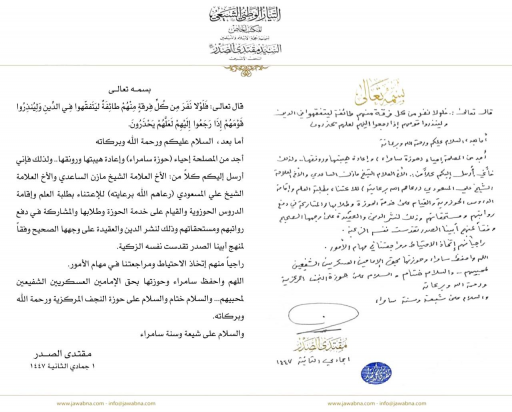 التيار الوطني الشيعي
المكتب الخاص
السيد مقتدى الصدر
بسمه تعالى
قال تعالى: فَلَوْلا نَفَرَ مِن كُلِّ فِرقةٍ مِنْهُمْ طَائِفَةٌ لِيَتَفَقَّهوا فِي الدِّينِ وَلِيُنذِروا
قَوْمَهُمْ إِذا رَجَعُوا إِلَيْهِمْ لَعَلَّهُمْ يَحْذَرُونَ.
أما بعد، السلام عليكم ورحمة الله وبركاته
أجد من المصلحة إحياء (حوزة سامراء) وإعادة هيبتها ورونقها.. ولذلك فإني
ارسل إليكم كلاً من: الأخ العلامة الشيخ مازن الساعدي والأخ العلامة
الشيخ علي المسعودي (رعاهم الله برعايته) للإعتناء بطلبة العلم وإقامة
الدروس الحوزوية والقيام على خدمة الحوزة وطلابها والمشاركة في دفع
رواتبهم ومستحقاتهم وذلك لنشر الدين والعقيدة على وجهها الصحيح وفقاً
لمنهج أبينا الصدر تقدست نفسه الزكية.
راجياً منهم إتخاذ الاحتياط ومراجعتنا في مهام الأمور.
اللهم واحفظ سامراء وحوزتها بحق الإمامين العسكريين الشفيعين
لمحبيهم.. والسلام ختام والسلام على حوزة النجف المركزية ورحمة الله
وبركاته.
والسلام على شيعة وسنة سامراء
مقتدى الصدر
١ جمادي الثانية ١٤٤٧
www.jawabna.com - info@jawabna.com
بسمه تعالى
قال تعالى: فلولا نفر من كل فرقة منهم طائفة ليتفقهوا في الدين
ولينذروا قومهم إذا رجعوا إليهم لعلهم يحذرون
أما بعد، السلام عليكم ورحمة الله وبركاته
أجد من المصلحة إحياء (حوزة سامراء) وإعادة هيبتها ورونقها.. ولذلك
فإني أرسل إليكم كلاً من: الأخ العلامة الشيخ مازن الساعدي والأخ العلامة
الشيخ علي المسعودي (رعاهم الله برعايته) للاعتناء بطلبة العلم وإقامة
الدروس الحوزوية والقيام على خدمة الحوزة وطلابها والمشاركة في دفع
رواتبهم ومستحقاتهم وذلك لنشر الدين والعقيدة على وجهها الصحيح
وفقاً لمنهج أبينا الصدر تقدست نفسه الزكية.
راجياً منهم إتخاذ الاحتياط ومراجعتنا في مهام الأمور.
اللهم واحفظ سامراء وحوزتها بحق الإمامين العسكريين الشفيعين
لمحبيهم.. والسلام ختام.. والسلام على حوزة النجف المركزية
ورحمة الله وبركاته
والسلام على شيعة وسنة سامراء
مقتدى الصدر
١ جمادي الثانية ١٤٤٧
www.jawabna.com - info@jawabna.com